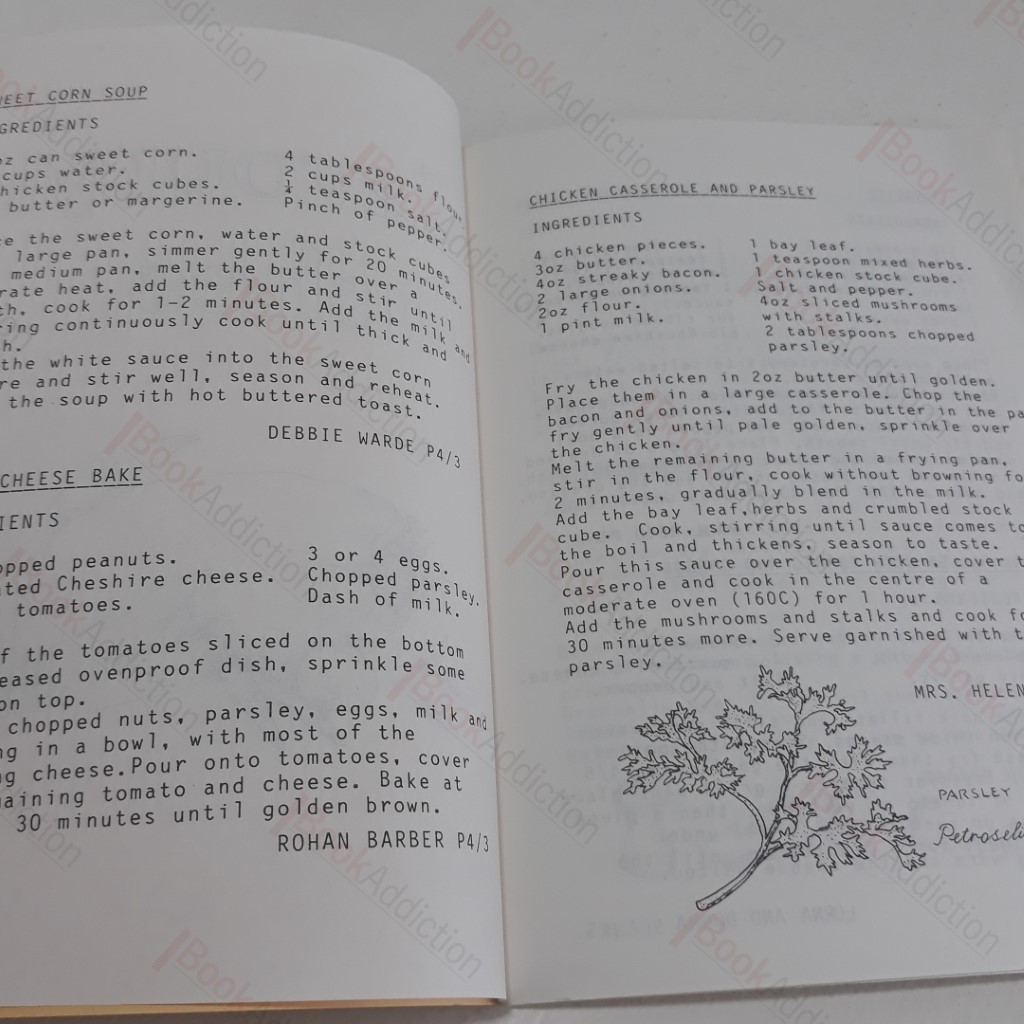 EET CORN SOUP
GREDIENTS
oz can sweet corn.
cups water.
hicken stock cubes.
butter or margerine.
4 tablespoons flou
2 cups milk.
¼ teaspoon salt.
Pinch of pepper.
e the sweet corn, water and stock cubes
large pan, simmer gently for 20 minutes.
medium pan, melt the butter over a
rate heat, add the flour and stir until
th, cook for 1-2 minutes. Add the milk and
ring continuously cook until thick and
h.
the white sauce into the sweet corn
re and stir well, season and reheat.
the soup with hot buttered toast.
DEBBIE WARDE P4/3
CHEESE BAKE
IENTS
opped peanuts.
ated Cheshire cheese.
tomatoes.
3 or 4 eggs.
Chopped parsley.
Dash of milk.
f the tomatoes sliced on the bottom
eased ovenproof dish, sprinkle some
on top.
chopped nuts, parsley, eggs, milk and
ng in a bowl, with most of the
ng cheese.Pour onto tomatoes, cover
maining tomato and cheese. Bake at
30 minutes until golden brown.
ROHAN BARBER P4/3
CHICKEN CASSEROLE AND PARSLEY
INGREDIENTS
4 chicken pieces.
3oz butter.
4oz streaky bacon.
2 large onions.
2oz flour.
1 pint milk.
1 bay leaf.
1 teaspoon mixed herbs.
1 chicken stock cube.
Salt and pepper.
4oz sliced mushrooms
with stalks.
2 tablespoons chopped
parsley.
Fry the chicken in 2oz butter until golden.
Place them in a large casserole. Chop the
bacon and onions, add to the butter in the pa
fry gently until pale golden, sprinkle over
the chicken.
Melt the remaining butter in a frying pan,
stir in the flour, cook without browning fo
2 minutes, gradually blend in the milk.
Add the bay leaf,herbs and crumbled stock
cube. Cook, stirring until sauce comes to
the boil and thickens, season to taste.
Pour this sauce over the chicken, cover t
casserole and cook in the centre of a
moderate oven (160C) for 1 hour.
Add the mushrooms and stalks and cook fo
30 minutes more. Serve garnished with t
parsley.
MRS. HELEN
PARSLEY
Petroseli
BookAddiction